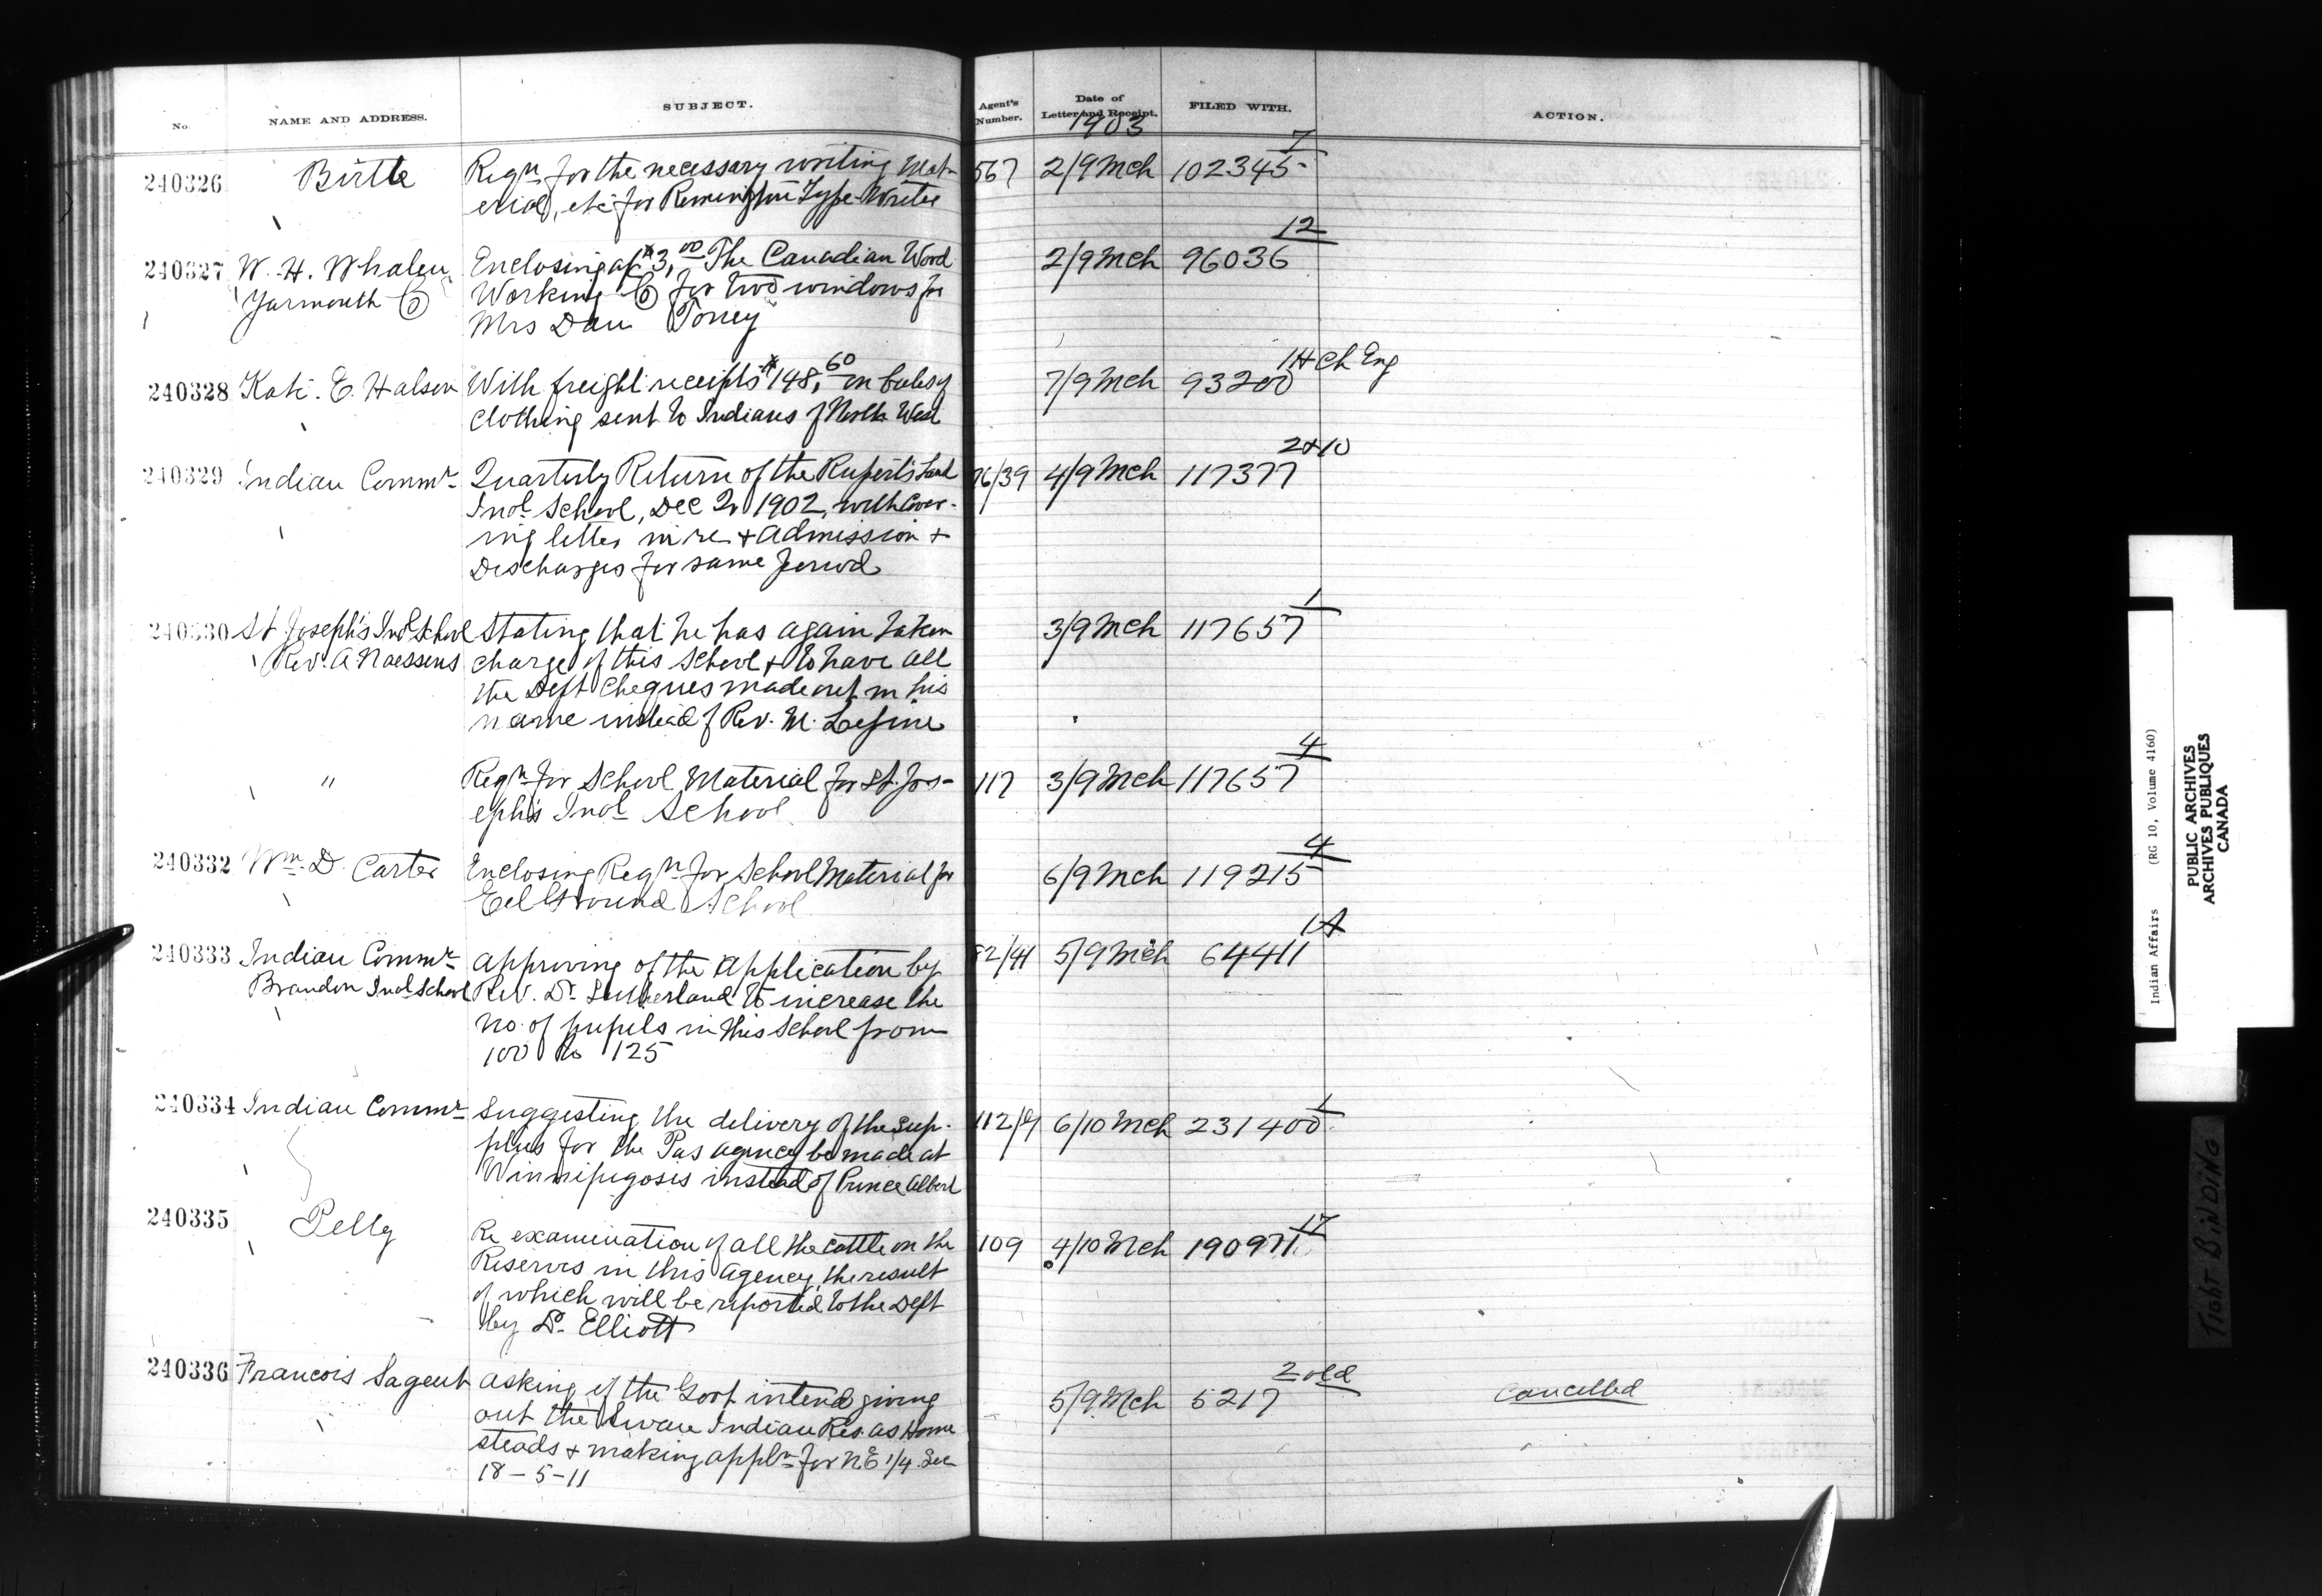 No. NAME AND ADDRESS. SUBJECT. Agent's Number. Date of Letter and Receipt. FILED WITH. ACTION.
1903
7
240326 Birtle Reqn for the necessary writing Mat- 567 2/9 Mch 102345
erial, etc for Remington Type Writer
12
240327 W. H. Whalen Enclosing a/c $3,00 The Canadian Wood 2/9 Mch 96036
Yarmouth Co Working Co for two windows for
Mrs Dan Toney
1H Ch Eng
240328 Kate E. Halson With freight receipts $148,60 on bales of 7/9 Mch 93200
clothing sent to Indians of North West
2+10
240329 Indian Commr Quarterly Return of the Rupert's Land 76/39 4/9 Mch 117377
Indl School, Dec 2r 1902, with cover-
ing letter in re + admission +
Discharges for same period
1
240330 St Joseph's Indl School Stating that he has again taken 3/9 Mch 117657
Rev. A Naessens charge of this School & to have all
the Dept cheques made out in his
name instead of Rev. M. Lepine
4
" Reqn for School Material for St. Jos- 117 3/9 Mch 117657
eph's Indl School
4
240332 Wm. D. Carter Enclosing Reqn for School Material for 6/9 Mch 119215
Eel Ground School
1A
240333 Indian Commr approving of the application by 82/41 5/9 Mch 64411
Brandon Indl School Rev. Dr. Sutherland to increase the
No. of pupils in this School from
100 to 125
1
240334 Indian Commr Suggesting the delivery of the sup- 6/10 Mch 231400
plies for the Pas agency be made at
Winnipegosis instead of Prince Albert
17
240335 Pelly Re examination of all the cattle on the 109 4/10 Mch 190971
Reserves in this Agency, the result
of which will be reported to the Dept
by Dr. Elliott
2 old
240336 Francois Sagent asking if the Govt intend giving 5/9 Mch 5217 Cancelled
out the Swan Indian Res. as Home
steads & making appln for N.E 1/4 Sec
18-5-11
Indian Affairs (RG 10, Volume 4160)
PUBLIC ARCHIVES
ARCHIVES PUBLIQUES
CANADA
Tight BiNDiNG